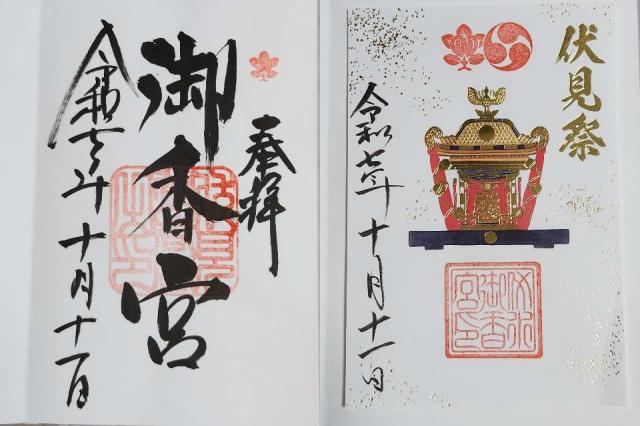 奉拝
御香宮
令和七年十月十一日
伏見祭
令和七年十月十一日
伏水
御香
宮印